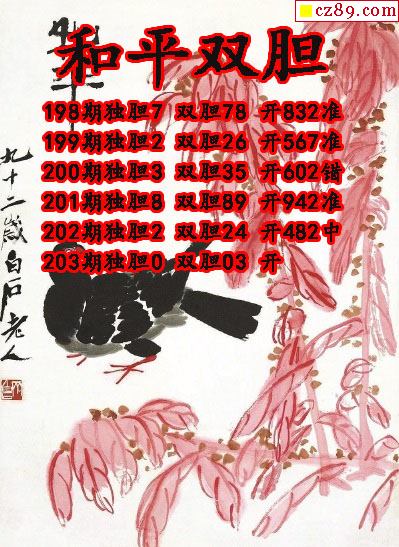 cz89.com
和平
和平双胆
198期独胆7 双胆78 开832准
199期独胆2 双胆26 开567准
200期独胆3 双胆35 开602错
201期独胆8 双胆89 开942准
202期独胆2 双胆24 开482中
203期独胆0 双胆03 开
九十二歲白石老人